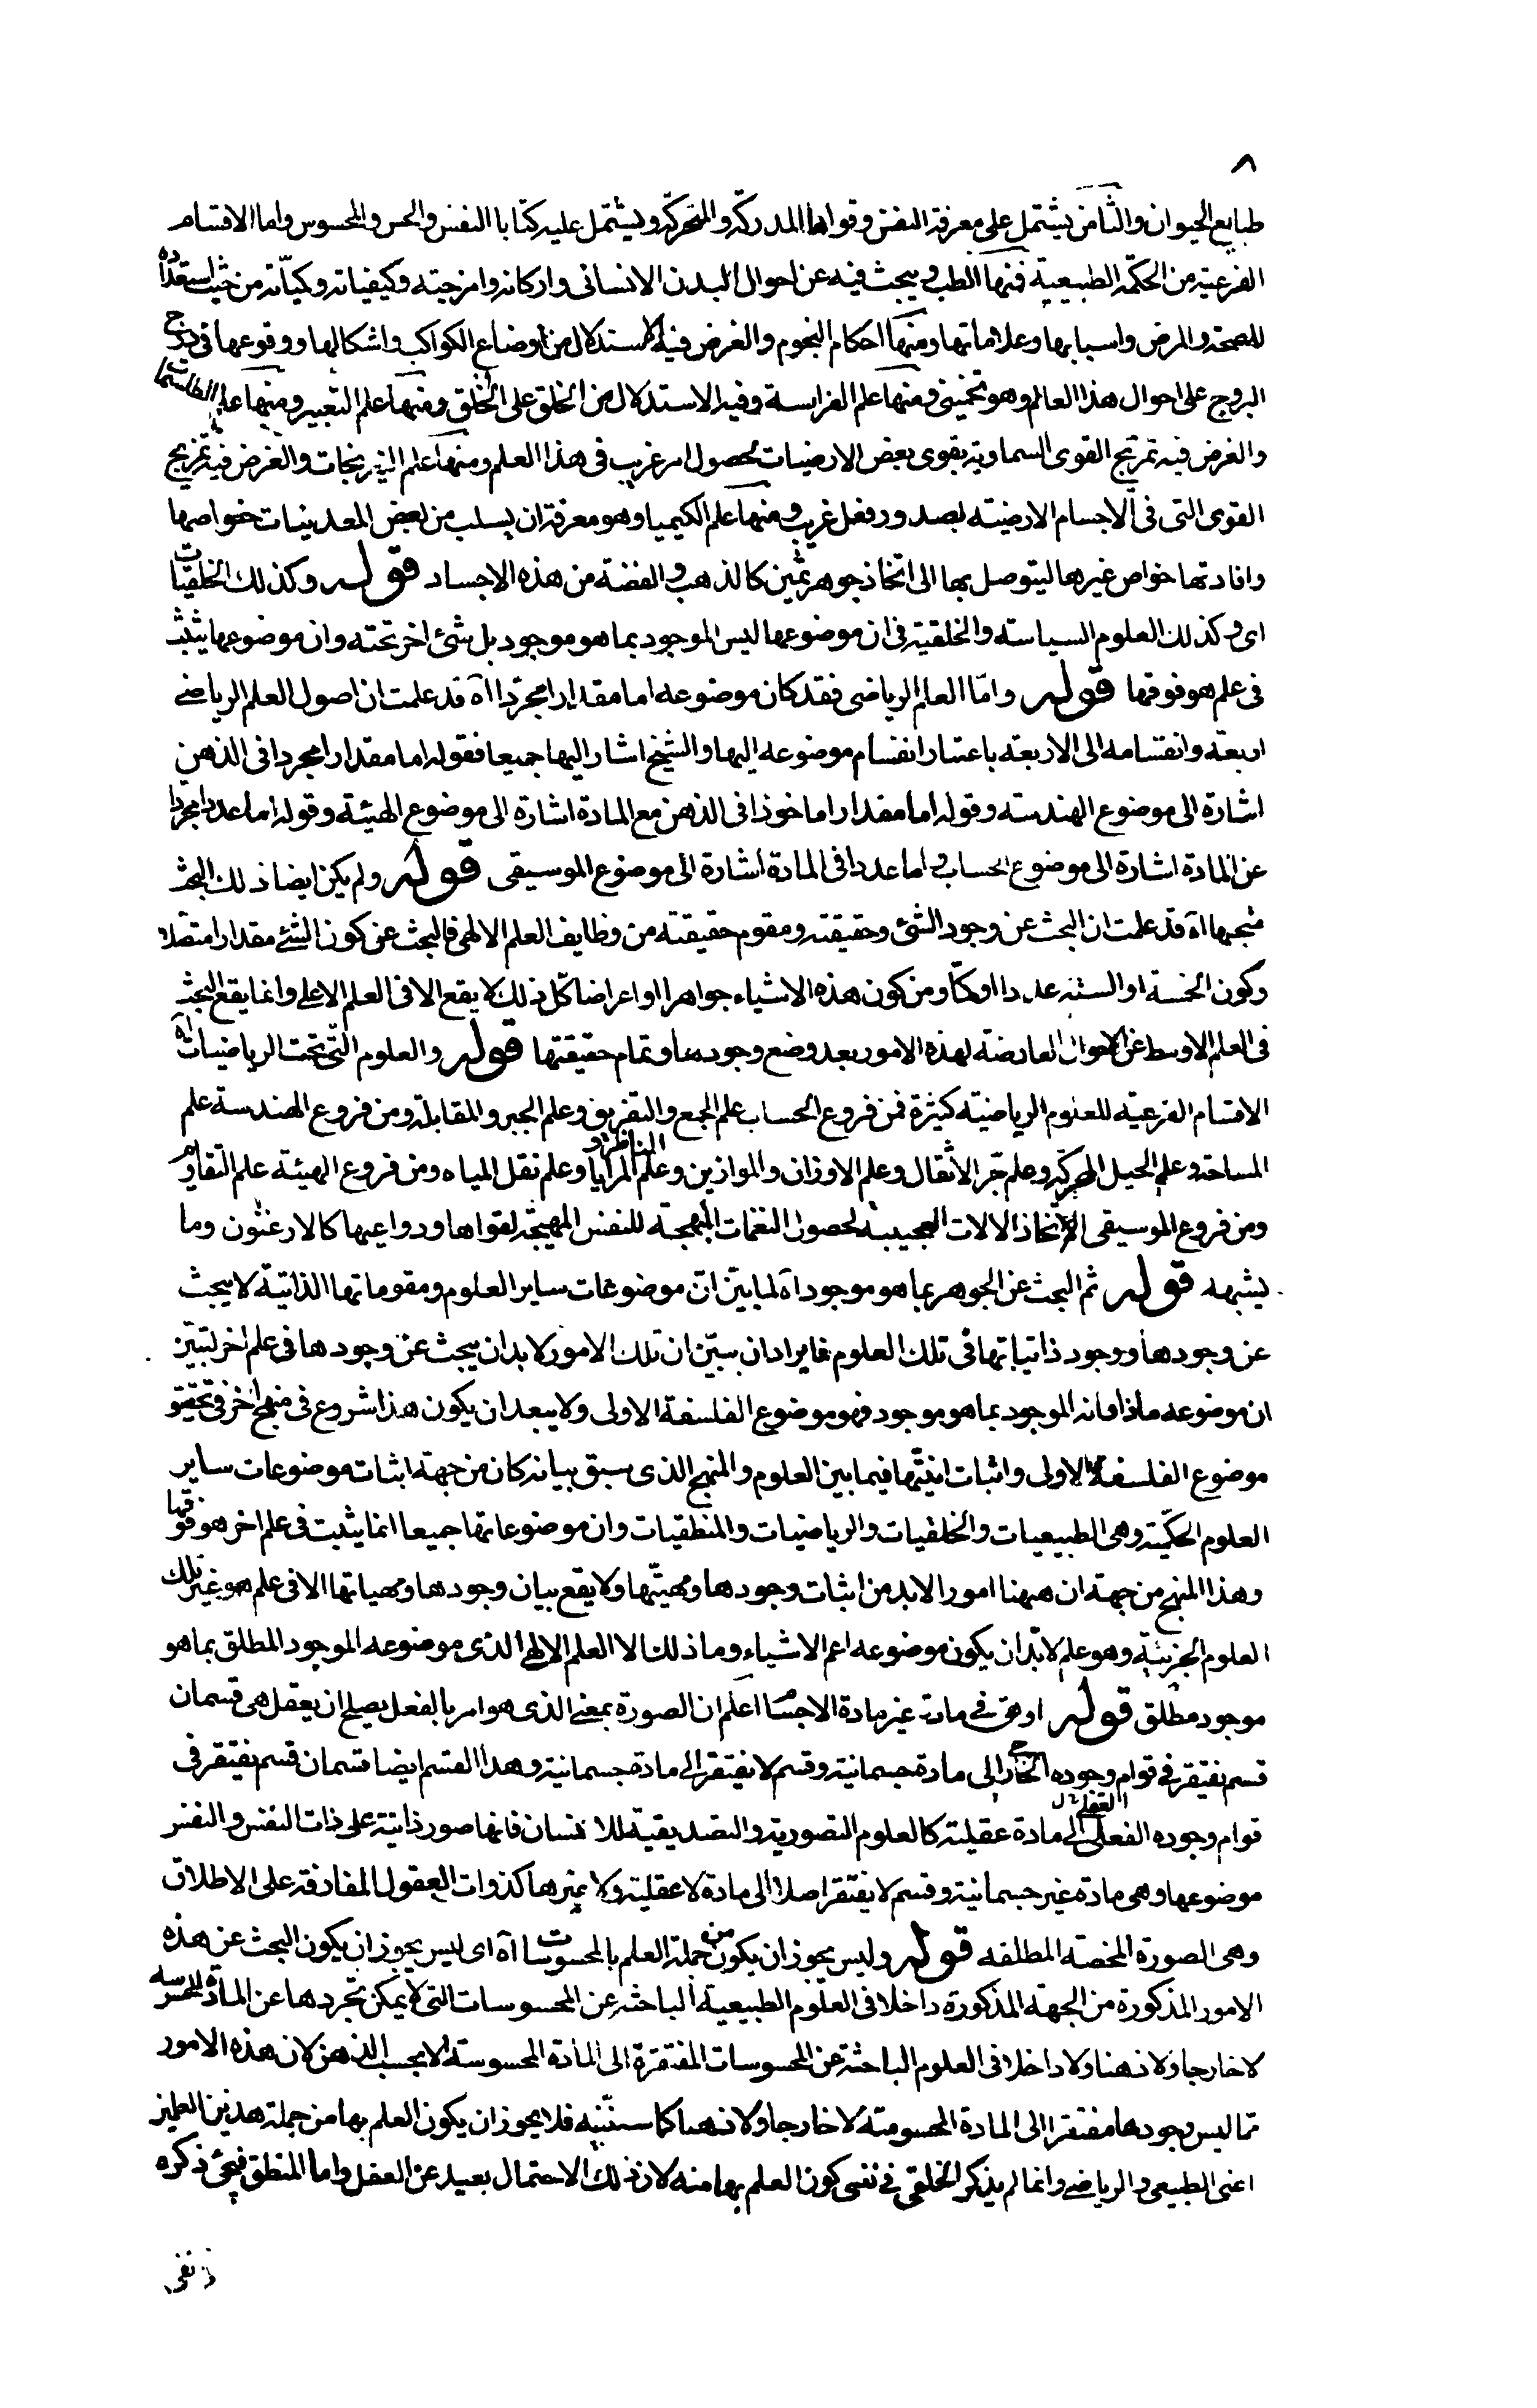 ٨
طبايع الحيوان والثامن يشتمل على معرفة النفس وقواها المدركة والمتحركة ويشتمل عليه كتابا النفس والحس والمحسوس واما الاقسام
الفرعية من الحكمة الطبيعية فمنها الطب ويبحث فيه عن احوال البدن الانسانى واركانه وامزجته وكيفياته وكمياته من حيث استعداده
للصحة والمرض واسبابها وعلاماتها ومنها احكام النجوم والغرض فيه الاستدلال من اوضاع الكواكب واشكالها ووقوعها فى درج
البروج على احوال هذا العالم وهو تخمينى ومنها علم الفراسة وفيه الاستدلال من الخلق على الخلق ومنها علم التعبير ومنها علم الطلسمات
والغرض فيه تمزيج القوى السماوية بقوى بعض الارضيات لحصول امر غريب فى هذا العلم ومنها علم النيرنجات والغرض فيه تمزيج
القوى التى فى الاجسام الارضية لصدور فعل غريب ومنها علم الكيميا وهو معرفة ان يسلب من بعض المعدنيات خواصها
وافادتها خواص غيرها ليتوصل بها الى اتخاذ جوهر ثمين كالذهب والفضة من هذه الاجساد قوله وكذلك الخلقيات
اى وكذلك العلوم السياسته والخلقية فى ان موضوعها ليس الموجود بما هو موجود بل شئ اخر تحته وان موضوعها يثبت
فى علم هو فوقها قوله وامّا العلم الرياضى فقد كان موضوعه اما مقدارا مجرّدا آه قد علمت ان اصول العلم الرياضے
اربعة وانقسامه الى الاربعة باعتبار انقسام موضوعه اليها والشيخ اشار اليها جميعا فقوله اما مقدارا مجردا فى الذهن
اشارة الى موضوع الهندسة وقوله اما مقدارا ماخوذا فى الذهن مع المادة اشارة الى موضوع الهيئة وقوله اما عددا مجردا
عن المادة اشارة الى موضوع الحساب واما عددا فى المادة اشارة الى موضوع الموسيقى قوله ولم يكن ايضا ذلك البحث
متجها آه قد علمت ان البحث عن وجود الشئ وحقيقته ومقوم حقيقته من وظايف العلم الالهى فالبحث عن كون الشئ مقدارا متصلا
وكون الخمسة او الستة عددا او كمّا ومن كون هذه الاشياء جواهرا او اعراضا كل ذلك لا يقع الا فى العلم الاعلى وانما يقع البحث
فى العلم الاوسط عن الاحوال العارضة لهذه الامور بعد وضع وجودها وتمام حقيقتها قوله والعلوم التى تحت الرياضيات آه
الاقسام الفرعية للعلوم الرياضية كثيرة فمن فروع الحساب علم الجمع والتفريق وعلم الجبر والمقابلة ومن فروع الهندسة علم
المساحة وعلم الحيل المتحركة وعلم جر الاثقال وعلم الاوزان والموازين وعلم المناظر و المرايا وعلم نقل المياه ومن فروع الهيئة علم التقاويم
ومن فروع الموسيقى اتخاذ الالات العجيبة لحصول النغمات المبهجة للنفس المهيجة لقواها ودواعيها كالارغنون وما
يشبهه قوله ثم البحث عن الجوهر بما هو موجود آه لما بيّن انّ موضوعات ساير العلوم ومقوماتها الذاتية لا يبحث
عن وجودها ووجود ذاتياتها فى تلك العلوم فايراد ان يبيّن ان تلك الامور لا بد ان يبحث عن وجودها فى علم اخر ليتبيّن
ان موضوعه ماذا فانه الموجود بما هو موجود فهو موضوع الفلسفة الاولى ولا يبعد ان يكون هذا شروع فى منهج اخر فى تحقيق
موضوع الفلسفة الاولى واثبات انيتها فيما بين العلوم والمنهج الذى سبق بيانه كان من جهة اثبات موضوعات ساير
العلوم الحكمية وهى الطبيعيات والخلقيات والرياضيات والمنطقيات وان موضوعاتها جميعا انما يثبت فى علم اخر هو فوقها
وهذا المنهج من جهة ان ههنا امورا لابد من اثبات وجودها ومهيتها ولا يقع بيان وجودها ومهياتها الا فى علم هو غير تلك
العلوم الجزئية وهو علم لا بدّ ان يكون موضوعه اعم الاشياء وما ذلك الا العلم الالهى الذى موضوعه الموجود المطلق بما هو
موجود مطلق قوله او هى فے مادة غير مادة الاجسام اعلم ان الصورة بمعنے الذى هو امر بالفعل يصلح ان يعقل هى قسمان
قسم يفتقر فے قوام وجوده الخارجى الى مادة جسمانية وقسم لا يفتقر الے مادة جسمانية وهذا القسم ايضا قسمان قسم يفتقر فى
قوام وجوده الفعلى العقلى الے مادة عقلية كالعلوم التصورية والتصديقية للانسان فانها صور ذاتية على ذات النفس والنفس
موضوعها وهى مادة غير جسمانية وقسم لا يفتقر اصلا الى مادة لا عقلية ولا غيرها كذوات العقول المفارقة على الاطلاق
وهى الصورة المحضة المطلقه قوله وليس يجوز ان يكون من جملة العلم بالمحسوسات آه اى ليس يجوز ان يكون البحث عن هذه
الامور المذكورة من الجهة المذكورة داخلا فى العلوم الطبيعية الباحثة عن المحسوسات التى لا يمكن تجردها عن المادة المحسوسة
لا خارجا ولا ذهنا ولا داخلا فى العلوم الباحثة عن المحسوسات المفتقرة الى المادة المحسوسة لا بحسب الذهن لان هذه الامور
مما ليس وجودها مفتقرا الى المادة المحسوسة لا خارجا ولا ذهنا كما سنبينه فلا يجوز ان يكون العلم بها من جملة هذين العلمين
اعنى الطبيعى والرياضے وانما لم يذكر الخلقى فے نفى كون العلم بها منه لان ذلك الاحتمال بعيد عن العقل واما المنطق فيجئ ذكره